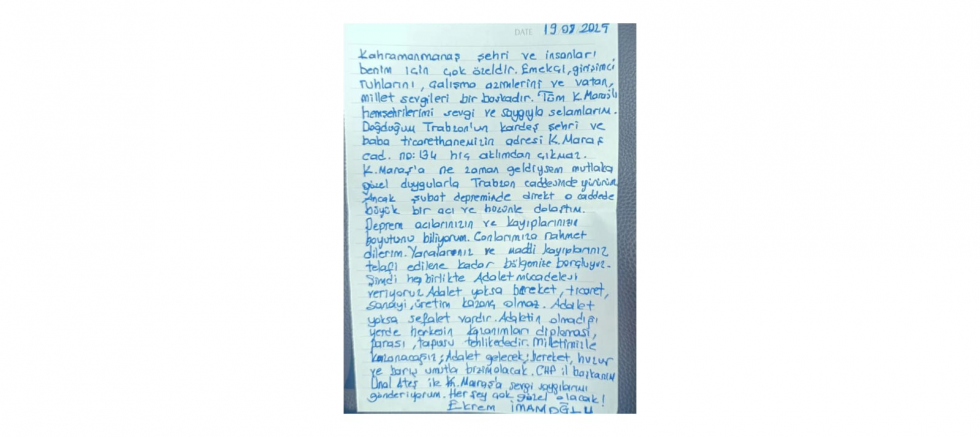 DATE 19.08.2025
Kahramanmaraş şehri ve insanları
benim için çok özeldir. Emekçi, girişimci
ruhlarını, çalışma azimlerini ve vatan,
millet sevgileri bir başkadır. Tüm K.Maraş'lı
hemşehrilerimi sevgi ve saygıyla selamlarım.
Doğduğum Trabzon'un kardeş şehri ve
baba ticarethanemizin adresi K.Maraş
cad. no: 134 hiç aklımdan çıkmaz.
K.Maraş'a ne zaman geldiysem mutlaka
güzel duygularla Trabzon caddesinde yürürüm.
Ancak şubat depreminde direkt o caddede
büyük bir acı ve hüzünle dolaştım.
Deprem acılarınızın ve kayıplarınızın
boyutunu biliyorum. Canlarımıza rahmet
dilerim. Yaralarınız ve maddi kayıplarınız
telafi edilene kadar bölgenize borçluyuz.
Şimdi hep birlikte Adalet mücadelesi
veriyoruz. Adalet yoksa bereket, ticaret,
sanayi, üretim kazanç olmaz. Adalet
yoksa sefalet vardır. Adaletin olmadığı
yerde herkesin kazanımları diploması,
parası, tapusu tehlikededir. Milletimizle
kazanacağız; Adalet gelecek; bereket, huzur
ve barış umutla bizim olacak. CHP il başkanım
Ünal Ateş ile K.Maraş'a sevgi saygılarımı
gönderiyorum. Her şey çok güzel olacak!
Ekrem İMAMOĞLU